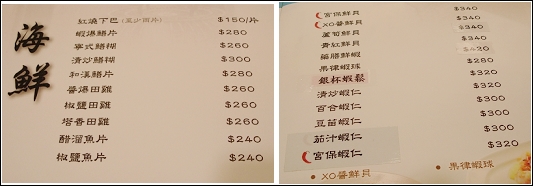 海鮮
紅燒下巴(至少兩片) $150/片
蝦爆鱔片 $280
寧式鱔糊 $260
清炒鱔糊 $300
和漢鱔片 $280
醬爆田雞 $260
椒鹽田雞 $260
塔香田雞 $260
醋溜魚片 $240
椒鹽魚片 $240
宮保鮮貝 $340
XO醬鮮貝 $340
蘆筍鮮貝 $340
貴紅鮮貝 $340
藥膳鮮蝦 $420
果律蝦球 $280
銀杯蝦鬆 $320
清炒蝦仁 $320
百合蝦仁 $300
豆苗蝦仁 $300
茄汁蝦仁 $300
宮保蝦仁 $320
• XO醬鮮貝 • 果律蝦球